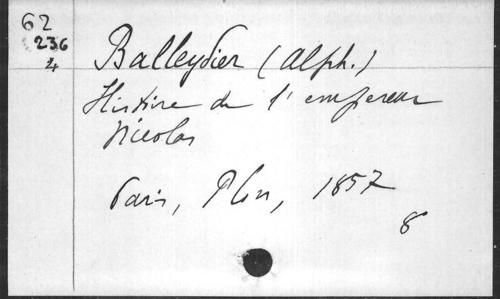 62
236
4
Balleydier (Alph.)
Histoire de l'empereur
Nicolas
Paris, Plon, 1857
8